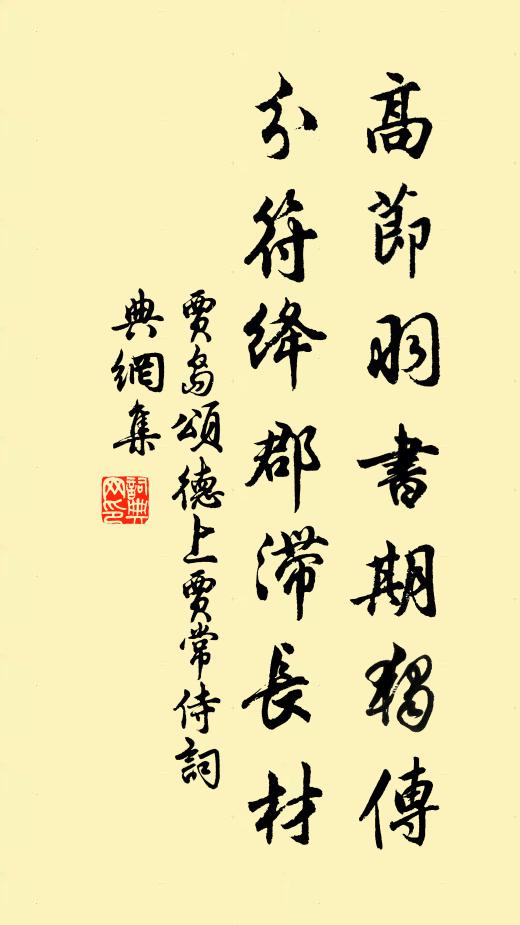 高節羽書期獨傳
分符絳郡滯長材
賈島頌德上賈常侍詞
典網集
詞典網印